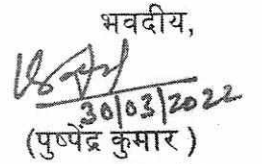 भवदीय,
30/03/2022
(पुष्पेंद्र कुमार)